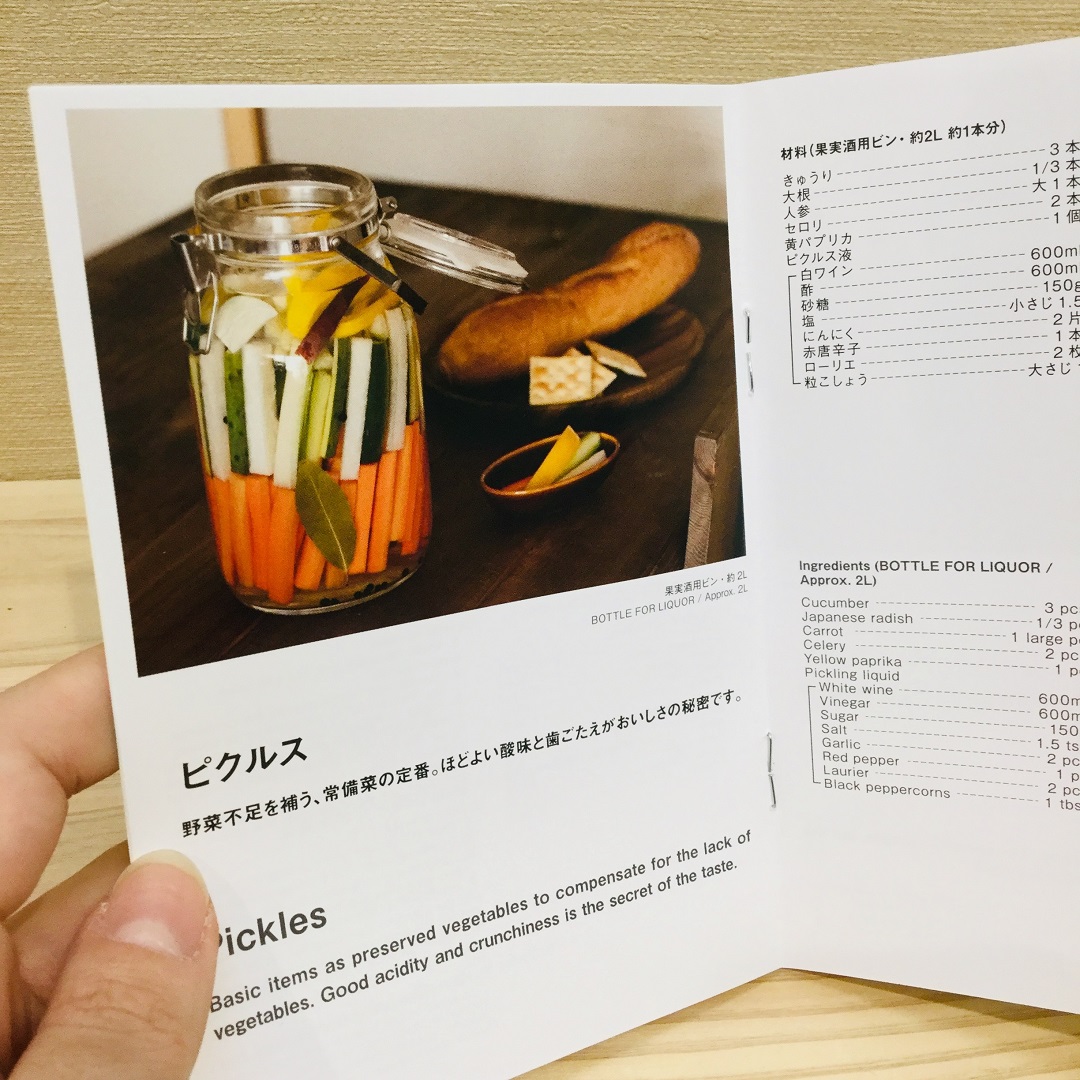 果実酒用ビン・約 2L
BOTTLE FOR LIQUOR / Approx. 2L
ピクルス
野菜不足を補う、常備菜の定番。ほどよい酸味と歯ごたえがおいしさの秘密です。
ickles
Basic items as preserved vegetables to compensate for the lack of
vegetables. Good acidity and crunchiness is the secret of the taste.
材料(果実酒用ビン・約2L 約1本分)
きゅうり 3 本
大根 1/3 本
人参 大 1 本
セロリ 2 本
黄パプリカ 1 個
ピクルス液
白ワイン 600ml
酢 600m
砂糖 150g
塩 小さじ 1.5
にんにく 2 片
赤唐辛子 1 本
ローリエ 2 枚
粒こしょう 大さじ 1
Ingredients (BOTTLE FOR LIQUOR /
Approx. 2L)
Cucumber 3 pc
Japanese radish 1/3 p
Carrot 1 large p
Celery 2 pc
Yellow paprika 1 p
Pickling liquid
White wine 600m
Vinegar 600m
Sugar 150
Salt 1.5 ts
Garlic 2 pc
Red pepper 1 p
Laurier 2 pc
Black peppercorns 1 tbs